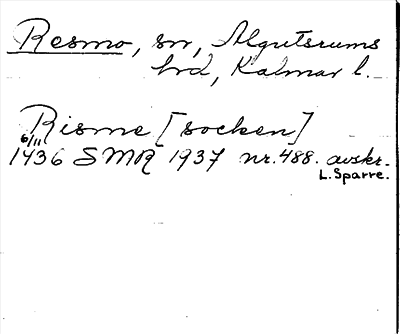 Resmo, sn, Algutsrums
hrd, Kalmar l.
Risme [socken]
6/11
1436 SMR 1937 nr. 488. avskr.
L. Sparre.